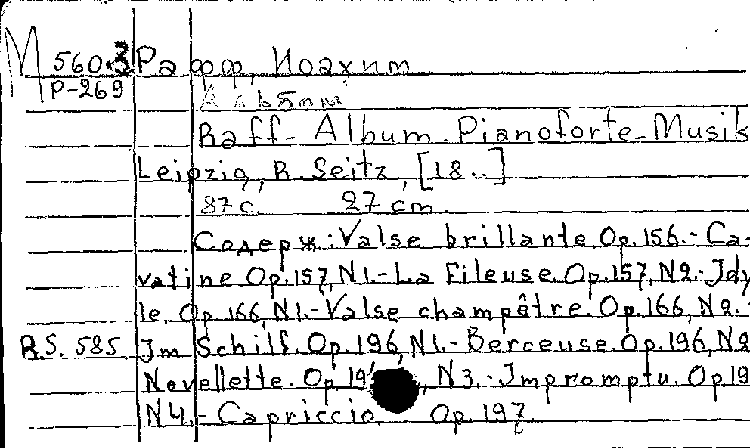 М 560.3 Рафф, Иоахим
Р-269
Альбом
Raff-Album Pianoforte-Musik
Leipzig, R. Seitz, [18..]
87 c. 27 cm
Содерж.: Valse brillante Op.156.- Ca-
vatine Op.157, N1.- La Fileuse. Op.157, N2.- Jdy
le. Op.166, N1.- Valse champâtre. Op.166, N2.-
R.S. 585 Jm Schilf. Op.196, N1.- Berceuse. Op.196, N2
Novellette. Op. 19 , N3.- Jmpromptu. Op.19
N4.- Capriccio. Op.197